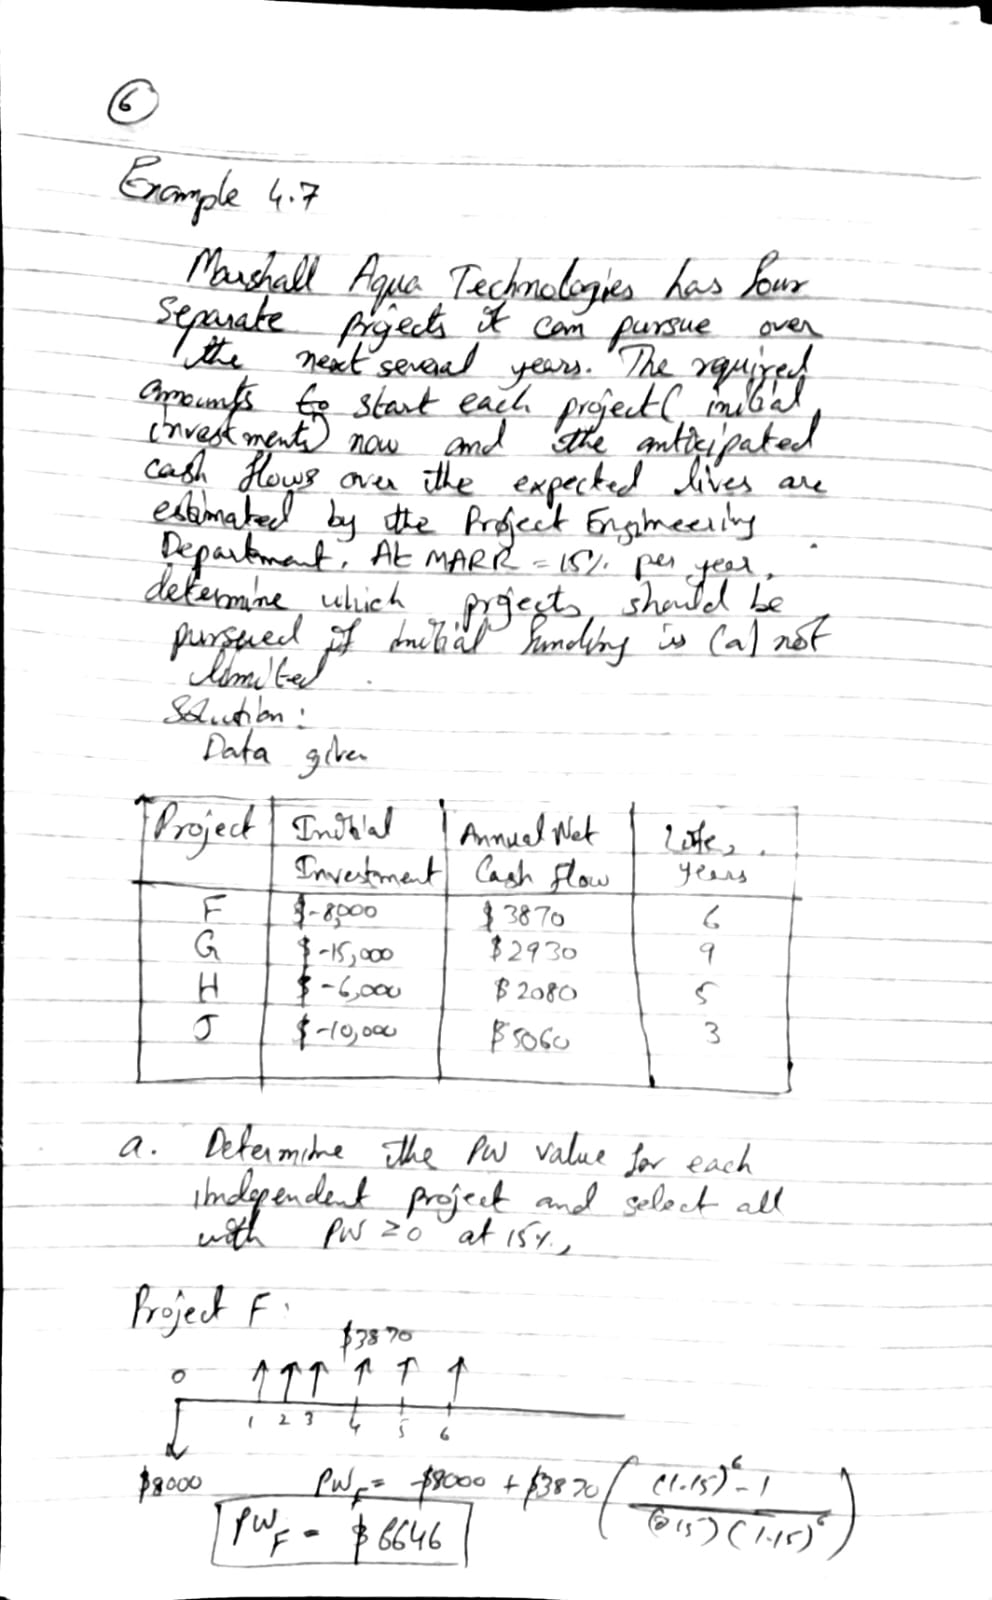 6
Example 4.7
Marshall Aqua Technologies has four
separate projects it can pursue over
the next several years. The required
amounts to start each project (initial
investments) now and the anticipated
cash flows over the expected lives are
estimated by the Project Engineering
Department. At MARR = 15% per year,
determine which projects should be
pursued if initial funding is (a) not
limited.
Solution:
Data given
Project | Initial Investment | Annual Net Cash flow | Life, years
F | $-8,000 | $3870 | 6
G | $-15,000 | $2930 | 9
H | $-6,000 | $2080 | 5
J | $-10,000 | $5060 | 3
a. Determine the PW value for each
independent project and select all
with PW ≥ 0 at 15%,
Project F:
$3870
0
1 2 3 4 5 6
$8000 PW_F = -$8000 + $3870 ( (1.15)^6 - 1 / (0.15)(1.15)^6 )
PW_F = $6646